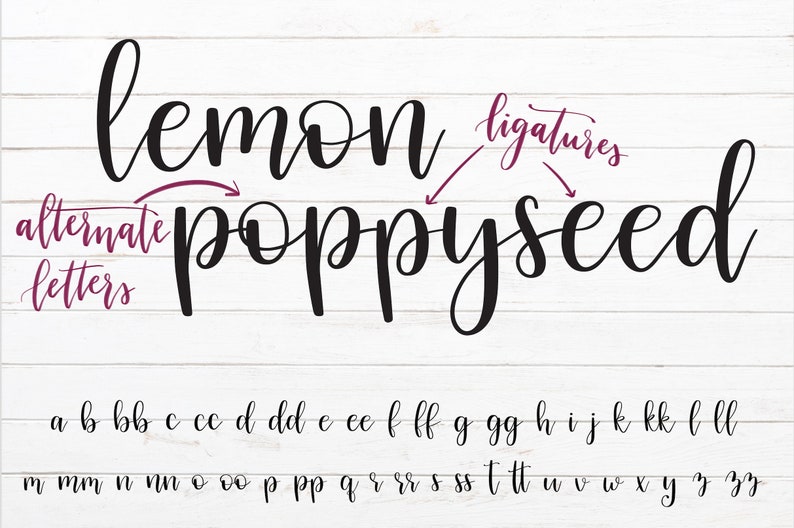 lemon
ligatures
alternate
letters
poppyseed
a b bb c cc d dd e ee f ff g gg h i j k kk l ll
m mm n nn o oo p pp q r rr s ss t tt u v w x y z zz